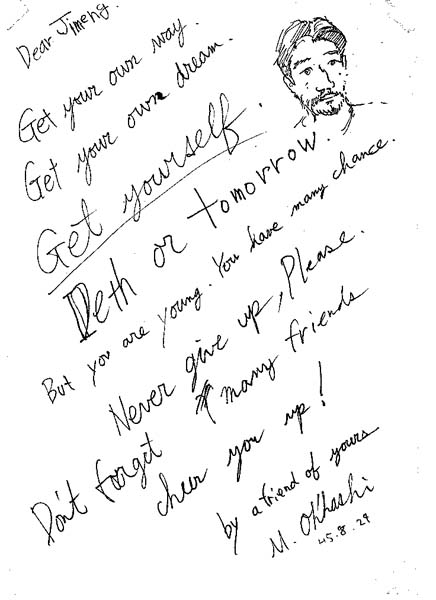 Dear Jimeng.
Get your own way.
Get your own dream.
Get yourself.
Deth or tomorrow.
But you are young. You have many chance.
Never give up, Please.
Don't forget many friends
cheer you up!
by a friend of yours
M. Ohhashi
45.8.29